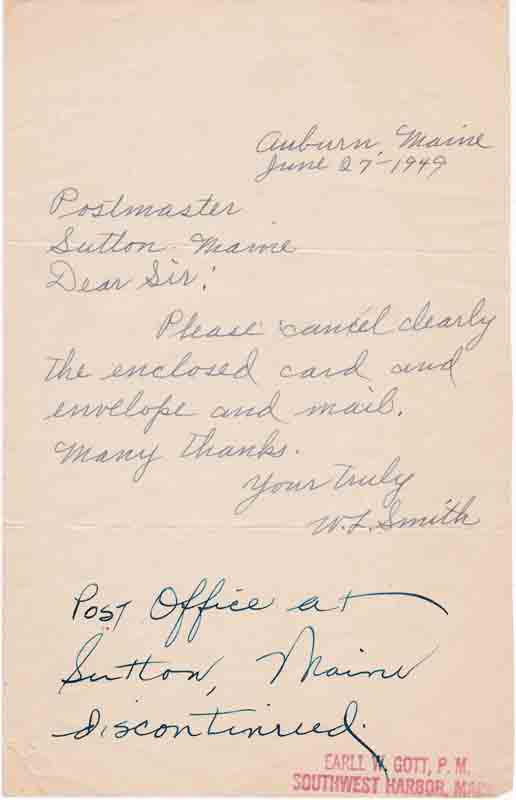 Auburn, Maine
June 27-1949
Postmaster
Sutton Maine
Dear Sir:
Please cancel clearly
the enclosed card and
envelope and mail.
Many thanks.
Your truly
W.L. Smith
Post Office at
Sutton, Maine
discontinued.
EARLL W. GOTT, P. M.
SOUTHWEST HARBOR,